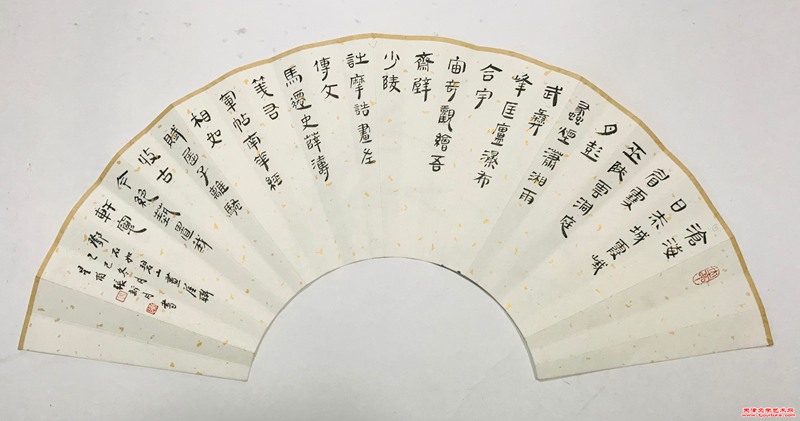 滄海
日赤城霞峨
眉雪
巫陝雲洞庭
月彭
蠡煙瀟湘雨
武彝
峰匡廬瀑布
合宇
宙奇觀繪吾
齋壁
少陵
詩摩詰畫左
傳文
馬遷史薛濤
箋右
軍帖南華經
相如
賦屈子離騷
收古
今絕藝置我
軒窗
鄧石如碧山畫崖聯
天津文学艺术网